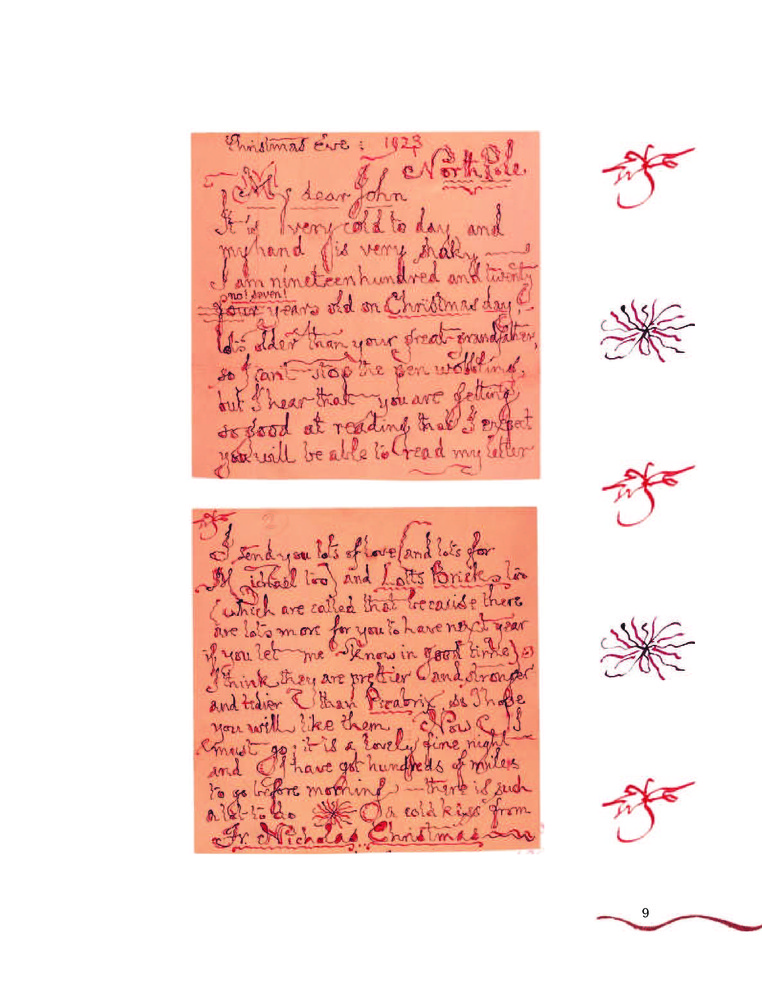 Christmas Eve : 1923
North Pole
My dear John
It is very cold to day and
my hand is very shaky
I am nineteen hundred and twenty
no! seven!
four years old on Christmas day,
lots older than your great-grandfather,
so I can't stop the pen wobbling,
but I hear that you are getting
so good at reading that I expect
you will be able to read my letter
I send you lots of love (and lots for
Michael too) and Lotts Bricks too
(which are called that because there
are lots more for you to have next year
if you let me know in good time)
I think they are prettier and stronger
and tidier than Picabrix. So I hope
you will like them Now I
must go; it is a lovely fine night
and I have got hundreds of miles
to go before morning — there is such
a lot to do
a cold kiss from
Fr. Nicholas Christmas
9